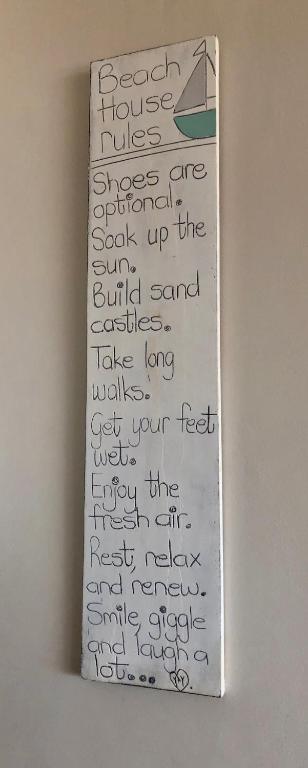 Beach
House
rules
Shoes are
optional.
Soak up the
sun.
Build sand
castles.
Take long
walks.
Get your feet
wet.
Enjoy the
fresh air.
Rest, relax
and renew.
Smile, giggle
and laugh a
lot...